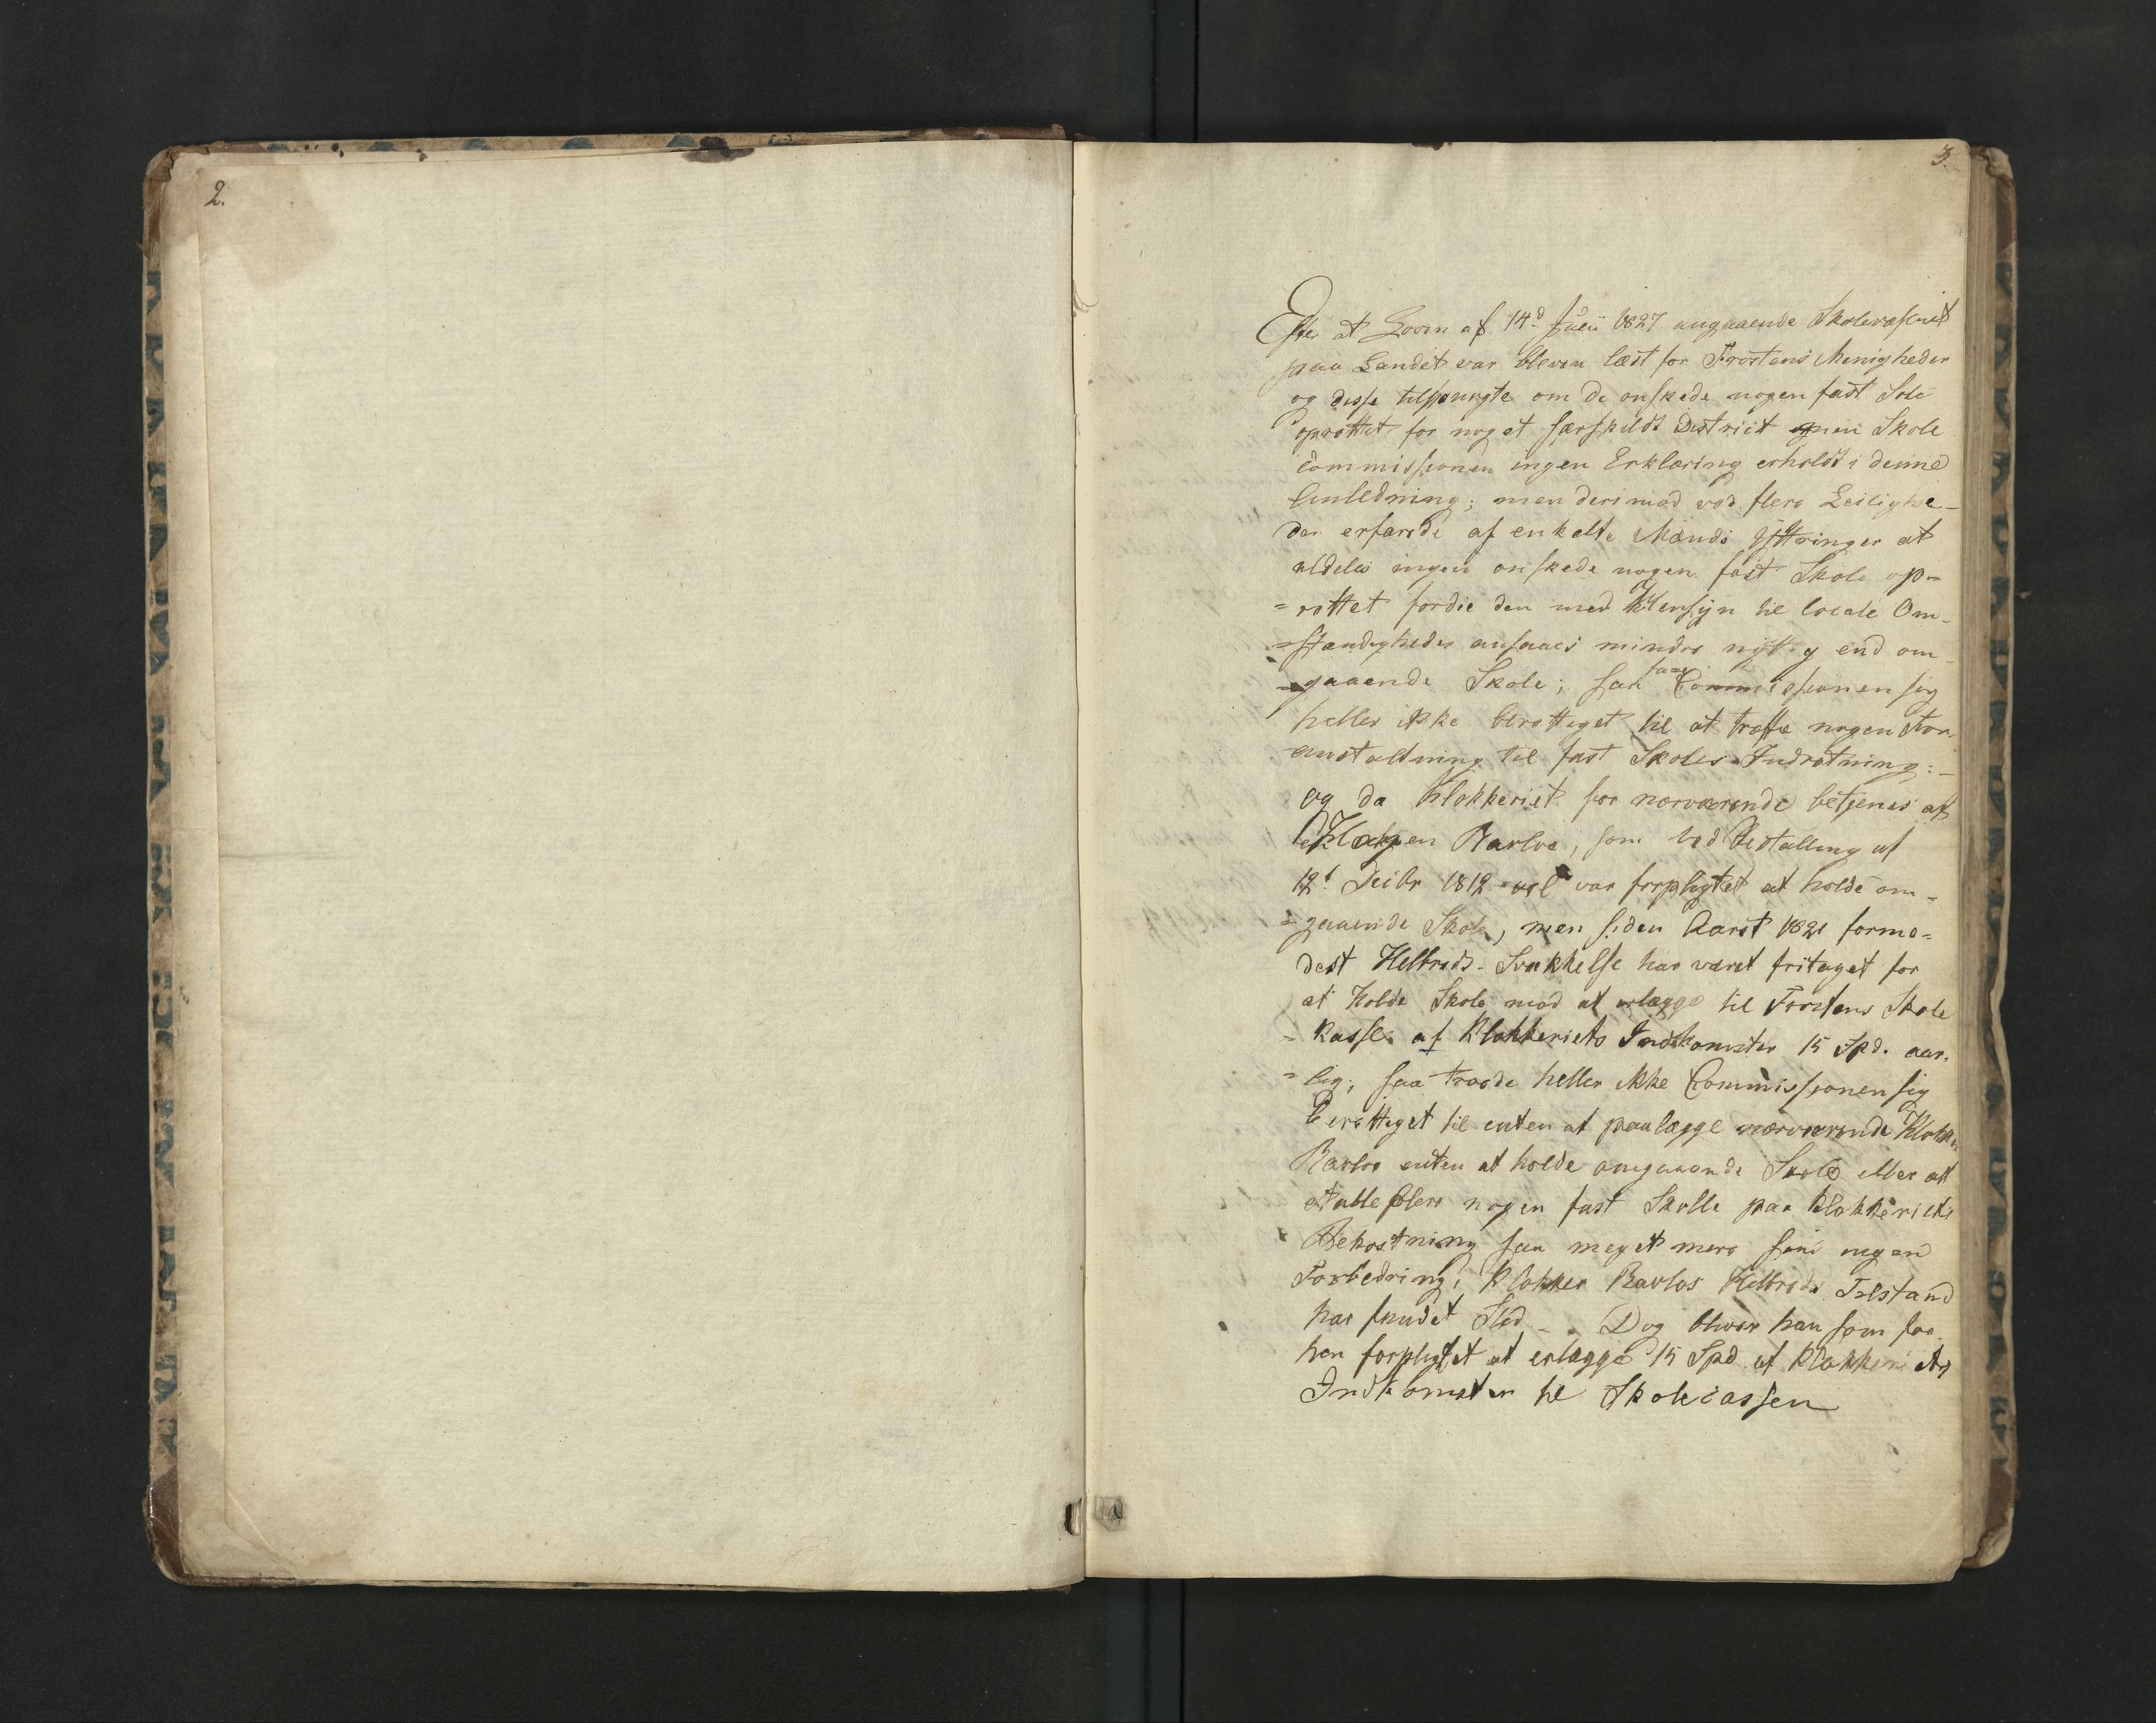 2.
3.
Efter at Loven af 14d Julii 1827 angaaende Skolevæsenet
paa Landet var bleven læst for Frostens Menigheder
og disse tilspurgte om de ønskede nogen fast Sole
oprættet for noget særskildt District men Skole
Commissionen ingen Erklæring erholdt i denne
Anledning; men derimod ved flere Leilighe-
der erfarede af enkelte Mænds Yttringer at
aldeles ingen ønskede nogen fast Skole op-
=rettet fordie den med Hensyn til locale Om-
=stændigheder ansaaes mindre nyttig end om-
=gaaende Skole; saa saae Commissionen sig
heller ikke berettiget til at træffe nogen For-
anstaltning til fast Skoles Indretning:-
og da Klokkeriet for nærværende betjenes af
Klokker Barlou, som ved Bestalling af
12t Decbr 1812 vel var forpligtet at holde om-
=gaaende Skole, men siden Aaret 1821 forme-
delst Helbreds-Svækkelse har været fritaget for
at holde Skole mod at erlægge til Frostens Skole
-Kasse af Klokkeriets Indkomster 15 Spd. aar-
=lig; saa troede heller ikke Commissionen sig
berettiget til enten at paalægge nærværende Klokker
Barlou enten at holde omgaaende Skole eller at
etablessere nogen fast Skolle paa Klokkeriets
Bekostning saa meget mere som ingen
Forbedring i Klokker Barlous Helbreds Tilstand
har fundet Sted - . Dog bliver han som før
hen forpligtet at erlægge 15 Spd af Klokkeriets
Indkomster til Skolecassen